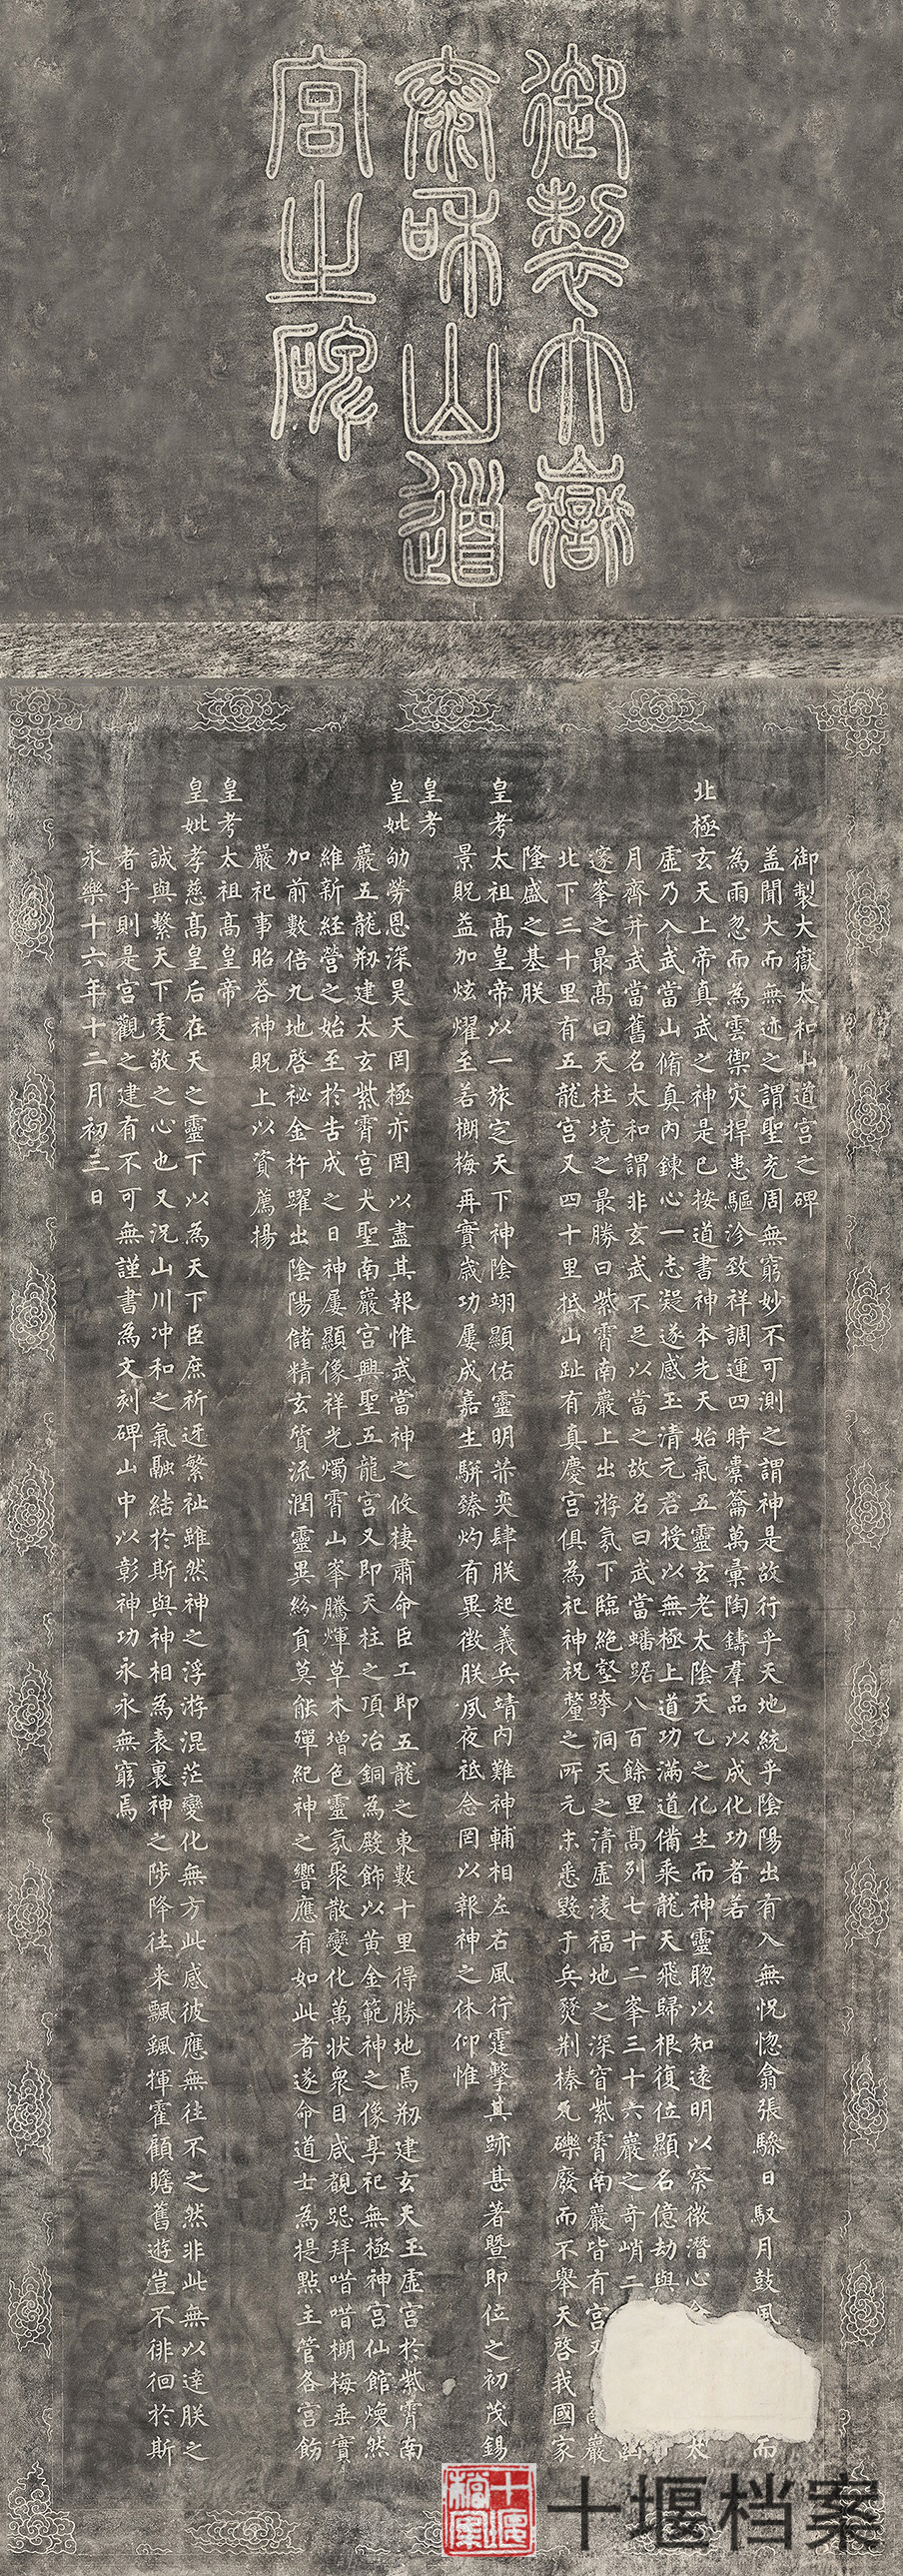 御製大嶽
太和山道
宮之碑
御製大嶽太和山道宮之碑
盖聞大而無迹之謂聖充周無窮妙不可測之謂神是故行乎天地統乎陰陽出有入無怳惚翕張驂日馭月鼓風
而
為雨忽而為雲禦灾捍患驅沴致祥調運四時橐籥萬彙陶鑄羣品以成化功者若
北極玄天上帝真武之神是已按道書神本先天始氣五靈玄老太陰天乙之化生而神靈聰以知遠明以察微潜心
太
虛乃入武當山脩真內鍊心一志凝遂感玉清元君授以無極上道功滿道備乘龍天飛歸根復位顯名億劫與
月齊并武當舊名太和謂非玄武不足以當之故名曰武當蟠踞八百餘里高列七十二峯三十六巖之奇峭二
邃峯之最高曰天柱境之最勝曰紫霄南巖上出游氛下臨絕壑跨洞天之清虛凌福地之深窅紫霄南巖皆有宮
巖
北下三十里有五龍宮又四十里抵山趾有真慶宮俱為祀神祝釐之所元末悉毀于兵燹荆榛瓦礫廢而不舉天啓我國家
隆盛之基朕
皇考太祖高皇帝以一旅定天下神陰翊顯佑靈明赫奕肆朕起義兵靖內難神輔相左右風行霆擊其跡甚著暨即位之初茂錫
景貺益加炫燿至若榔梅再實嵗功屢成嘉生駢臻灼有異徵朕夙夜祗念罔以報神之休仰惟
皇考
皇妣劬勞恩深昊天罔極亦罔以盡其報惟武當神之攸棲肅命臣工即五龍之東數十里得勝地焉剏建玄天玉虛宮於紫霄南
巖五龍剏建太玄紫霄宮大聖南巖宮興聖五龍宮又即天柱之頂冶銅為殿飾以黃金範神之像享祀無極神宮仙館煥然
維新経營之始至於告成之日神屢顯像祥光燭霄山峯騰輝草木增色靈氛聚散變化萬狀衆目咸覩跽拜嘻嘻榔梅垂實
加前數倍九地啓祕金杵躍出陰陽儲精玄質流潤靈異紛貟莫能殫紀神之響應有如此者遂命道士為提點主管各宮飭
嚴祀事昭荅神貺上以資薦揚
皇考太祖高皇帝
皇妣孝慈高皇后在天之靈下以為天下臣庶祈迓繁祉雖然神之浮游混茫變化無方此感彼應無往不之然非此無以達朕之
誠與繫天下虔敬之心也又況山川冲和之氣融結於斯與神相為表裏神之陟降往来飄飄揮霍顧瞻舊遊豈不徘徊於斯
者乎則是宮觀之建有不可無謹書為文刻碑山中以彰神功永永無窮焉
永樂十六年十二月初三日
十堰档案
十堰档案